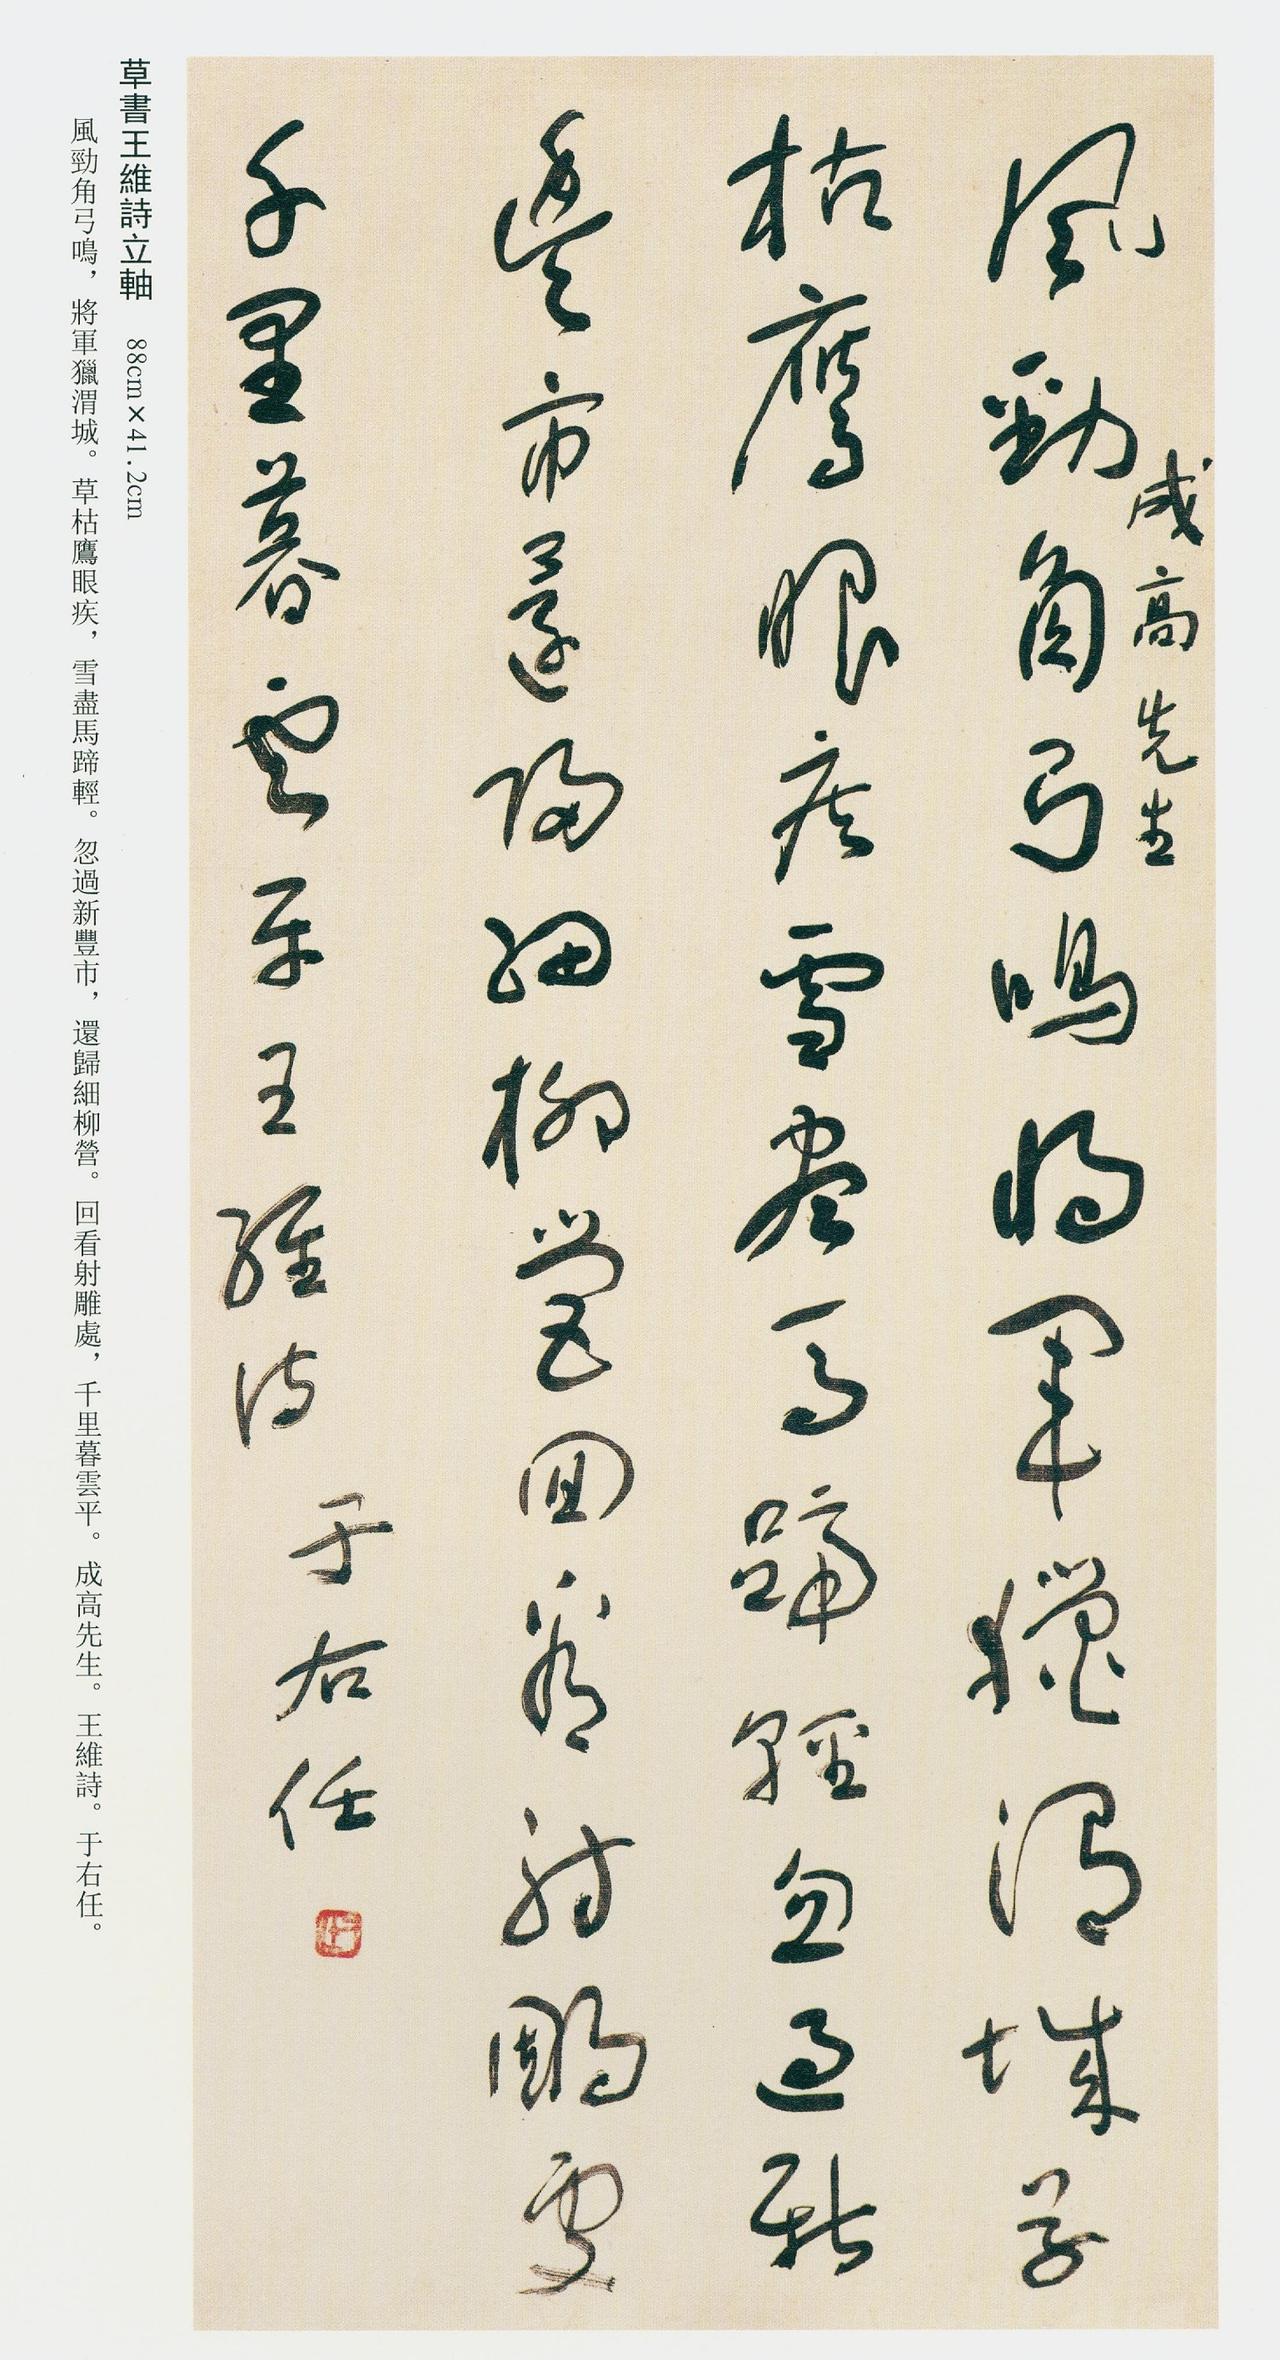 風勁角弓鳴將軍獵渭城草
成高先生
枯鷹眼疾雪盡馬蹄輕忽過新
豐市還歸細柳營回看射雕處
千里暮雲平王維詩
于右任
草書王維詩立軸 88cm×41.2cm
風勁角弓鳴，將軍獵渭城。草枯鷹眼疾，雪盡馬蹄輕。忽過新豐市，還歸細柳營。回看射雕處，千里暮雲平。成高先生。王維詩。于右任。